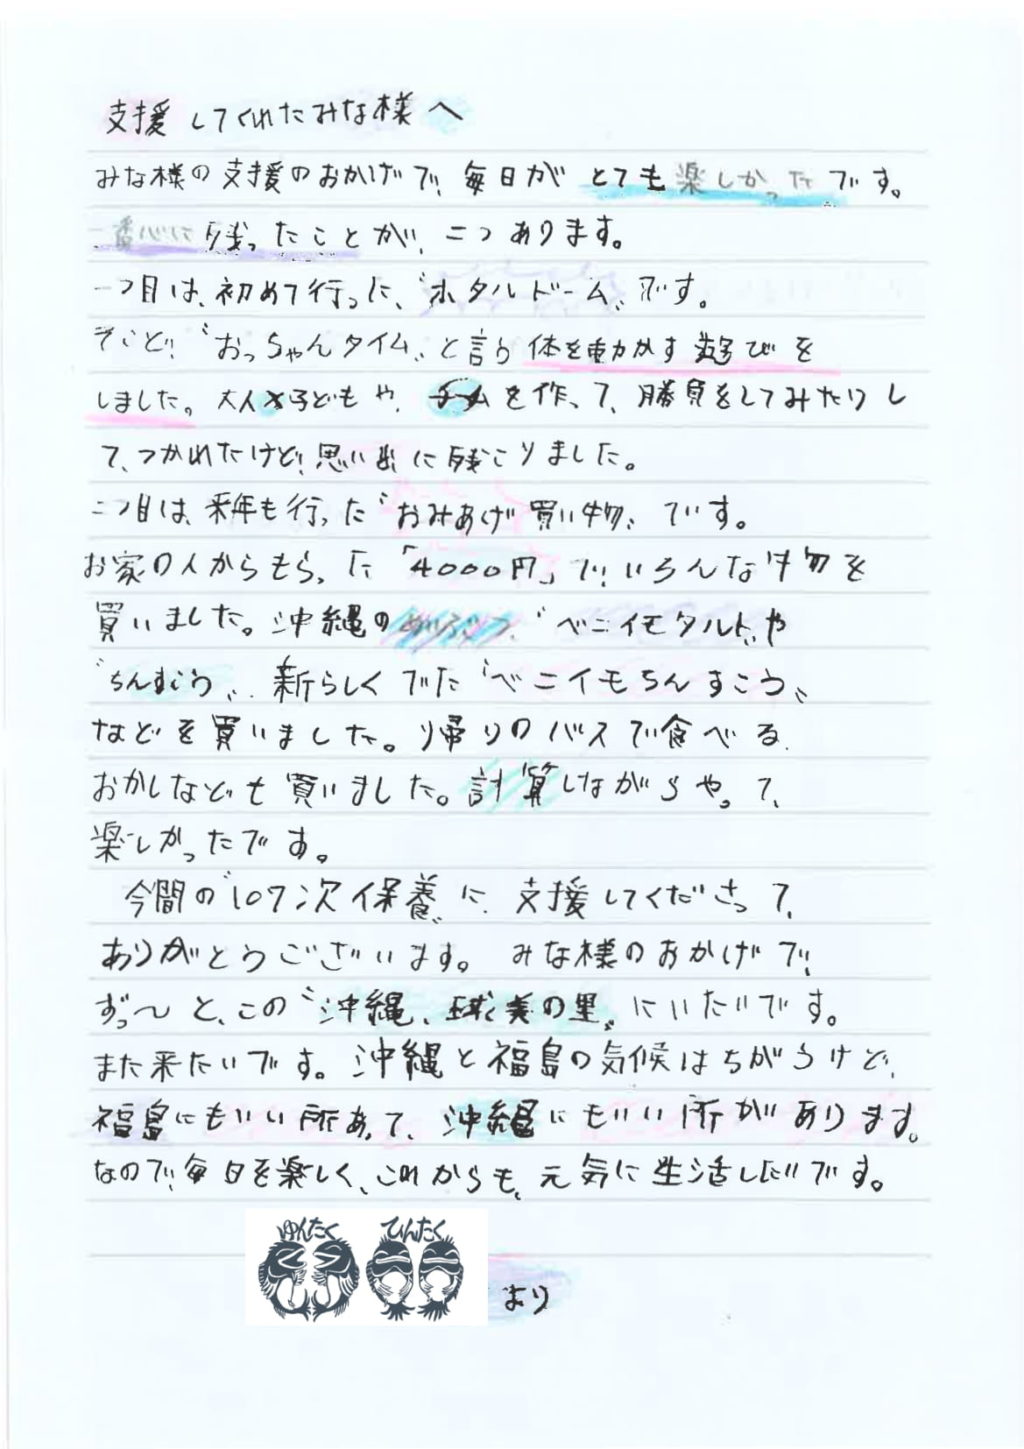 支援してくれたみな様へ
みな様の支援のおかげで、毎日がとても楽しかったです。
一番心に残ったことが、二つあります。
一つ目は、初めて行った、〝ホタルドーム〟です。
そこで、〝おっちゃんタイム〟と言う体を動かす遊びを
しました。大人×子どもや、チームを作って、勝負をしてみたりし
て、つかれたけど、思い出に残こりました。
二つ目は、来年も行った〝おみあげ買い物〟でいす。
お家の人からもらった「4000円」で、いろんな物を
買いました。沖縄の〝ベニイモタルト〟や
〝ちんすこう〟、新らしくでた〝ベニイモちんすこう〟
などを買いました。帰りのバスで食べる、
おかしなども買いました。計算しながらやって、
楽しかったです。
今間の〝107次保養〟に、支援してくださって、
ありがとうございます。みな様のおかげで、
ずっ〜と、この〝沖縄、球美の里〟にいたいです。
また来たいです。沖縄と福島の気候はちがうけど、
福島にもいい所あって、沖縄にもいい所があります。
なので、毎日を楽しく、これからも、元気に生活しだいです。
ゆんたく ひんたく
より